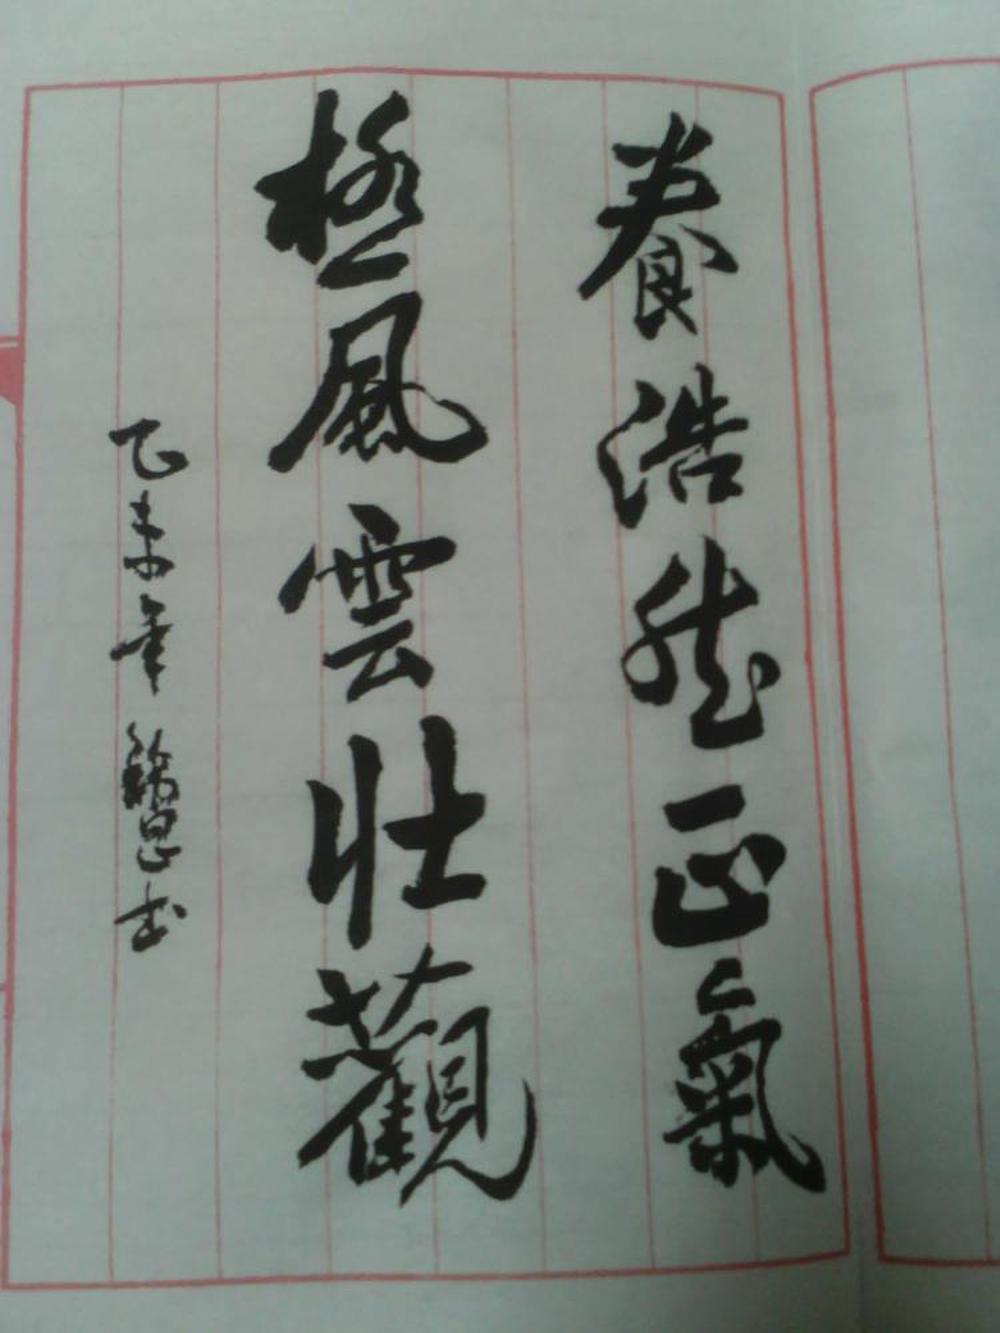 養浩然正氣
極風雲壯觀
乙未年 書